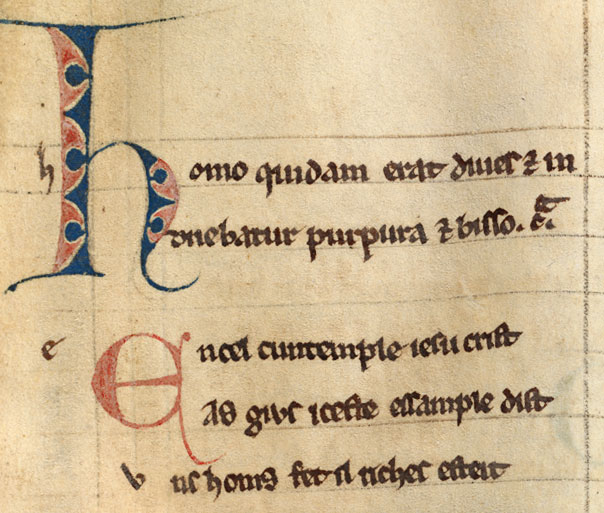 h Homo quidam erat diues ⁊ in
duebatur purpura ⁊ bisso.
e Encel cuntemple iesu crist
As gius iceste essample dist
Vns homs fet il riches esteit